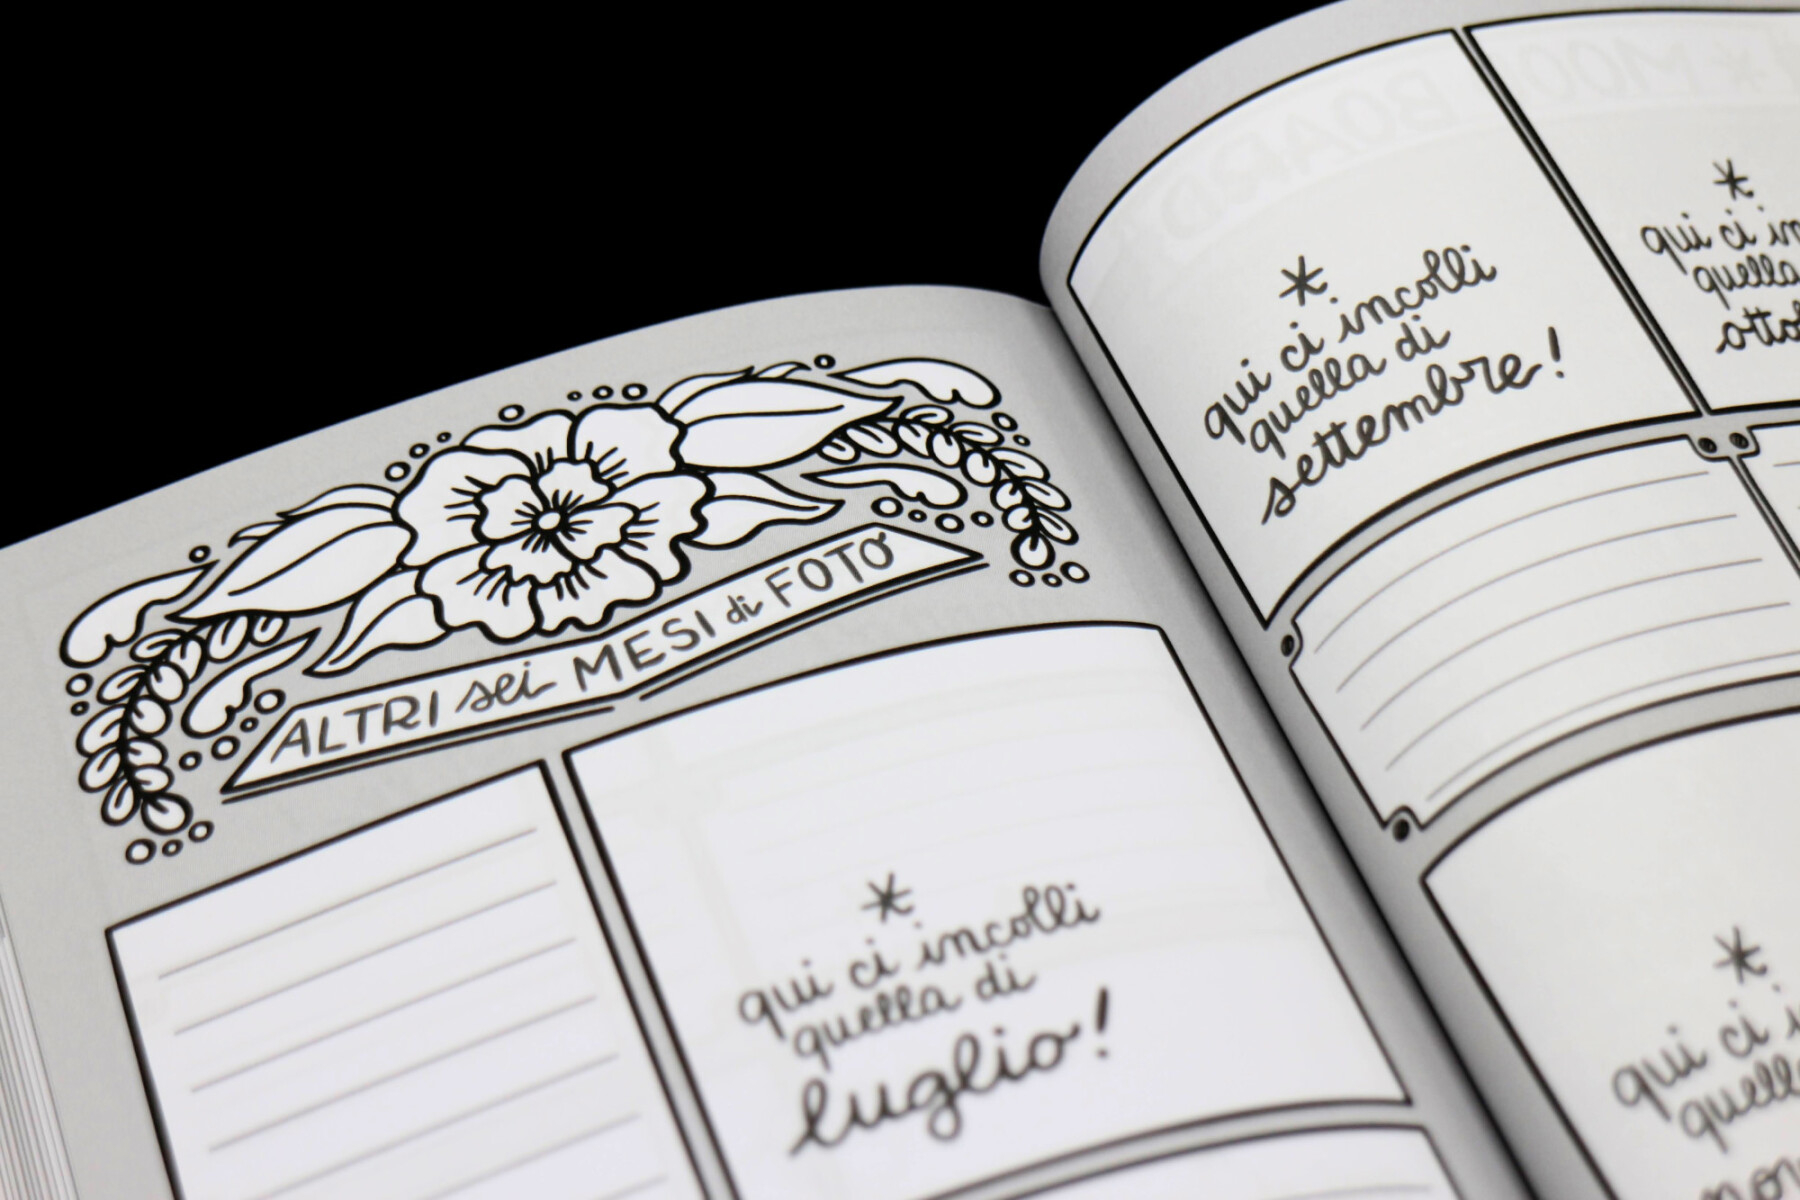 ALTRI sei MESI di FOTO
*
qui ci incolli
quella di
luglio!
*
qui ci incolli
quella di
settembre!
*
qui ci
quella
*
qui ci